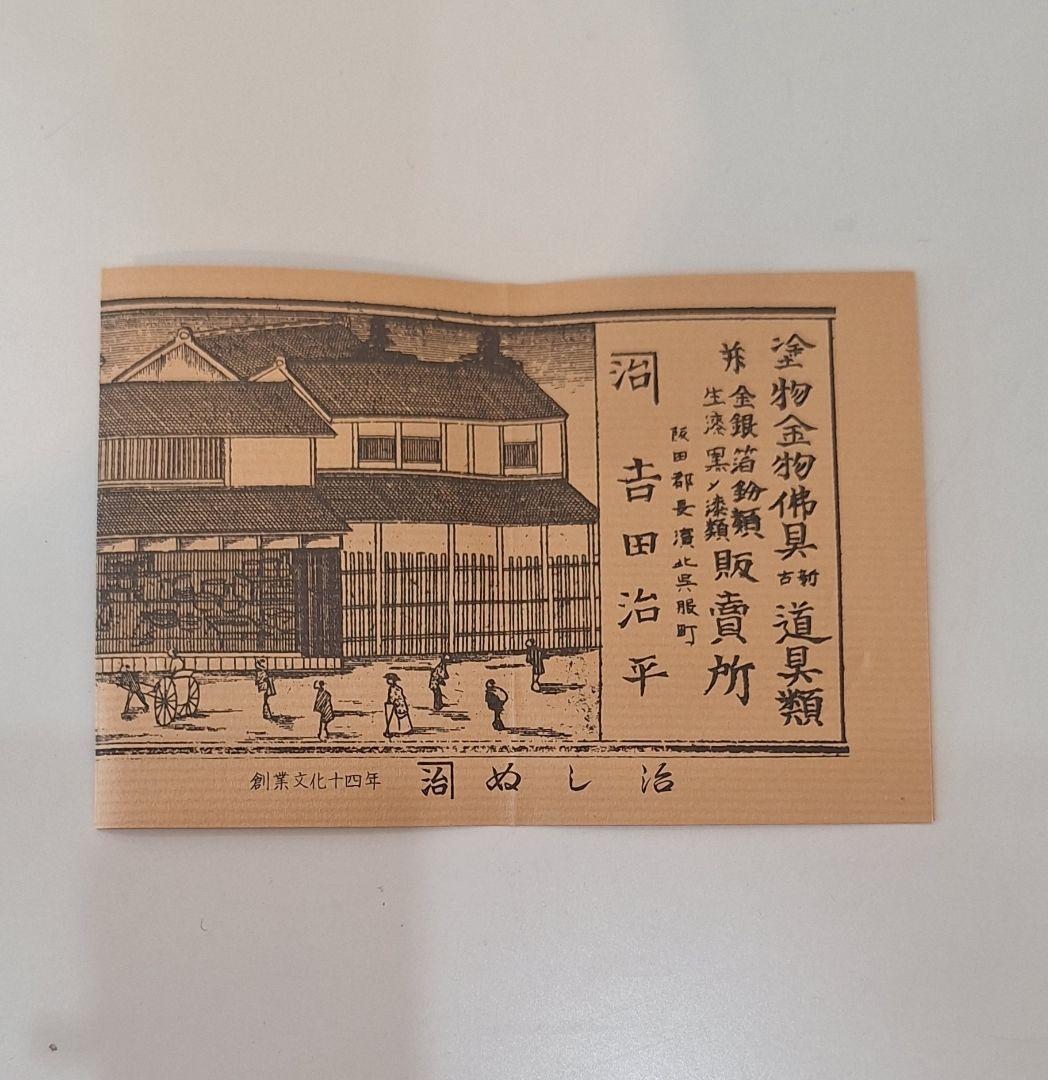 塗物金物佛具新古道具類
并金銀箔粉類
生漆黒メ漆類
販賣所
阪田郡長濱北呉服町
治 吉田治平
創業文化十四年 治 ぬし治